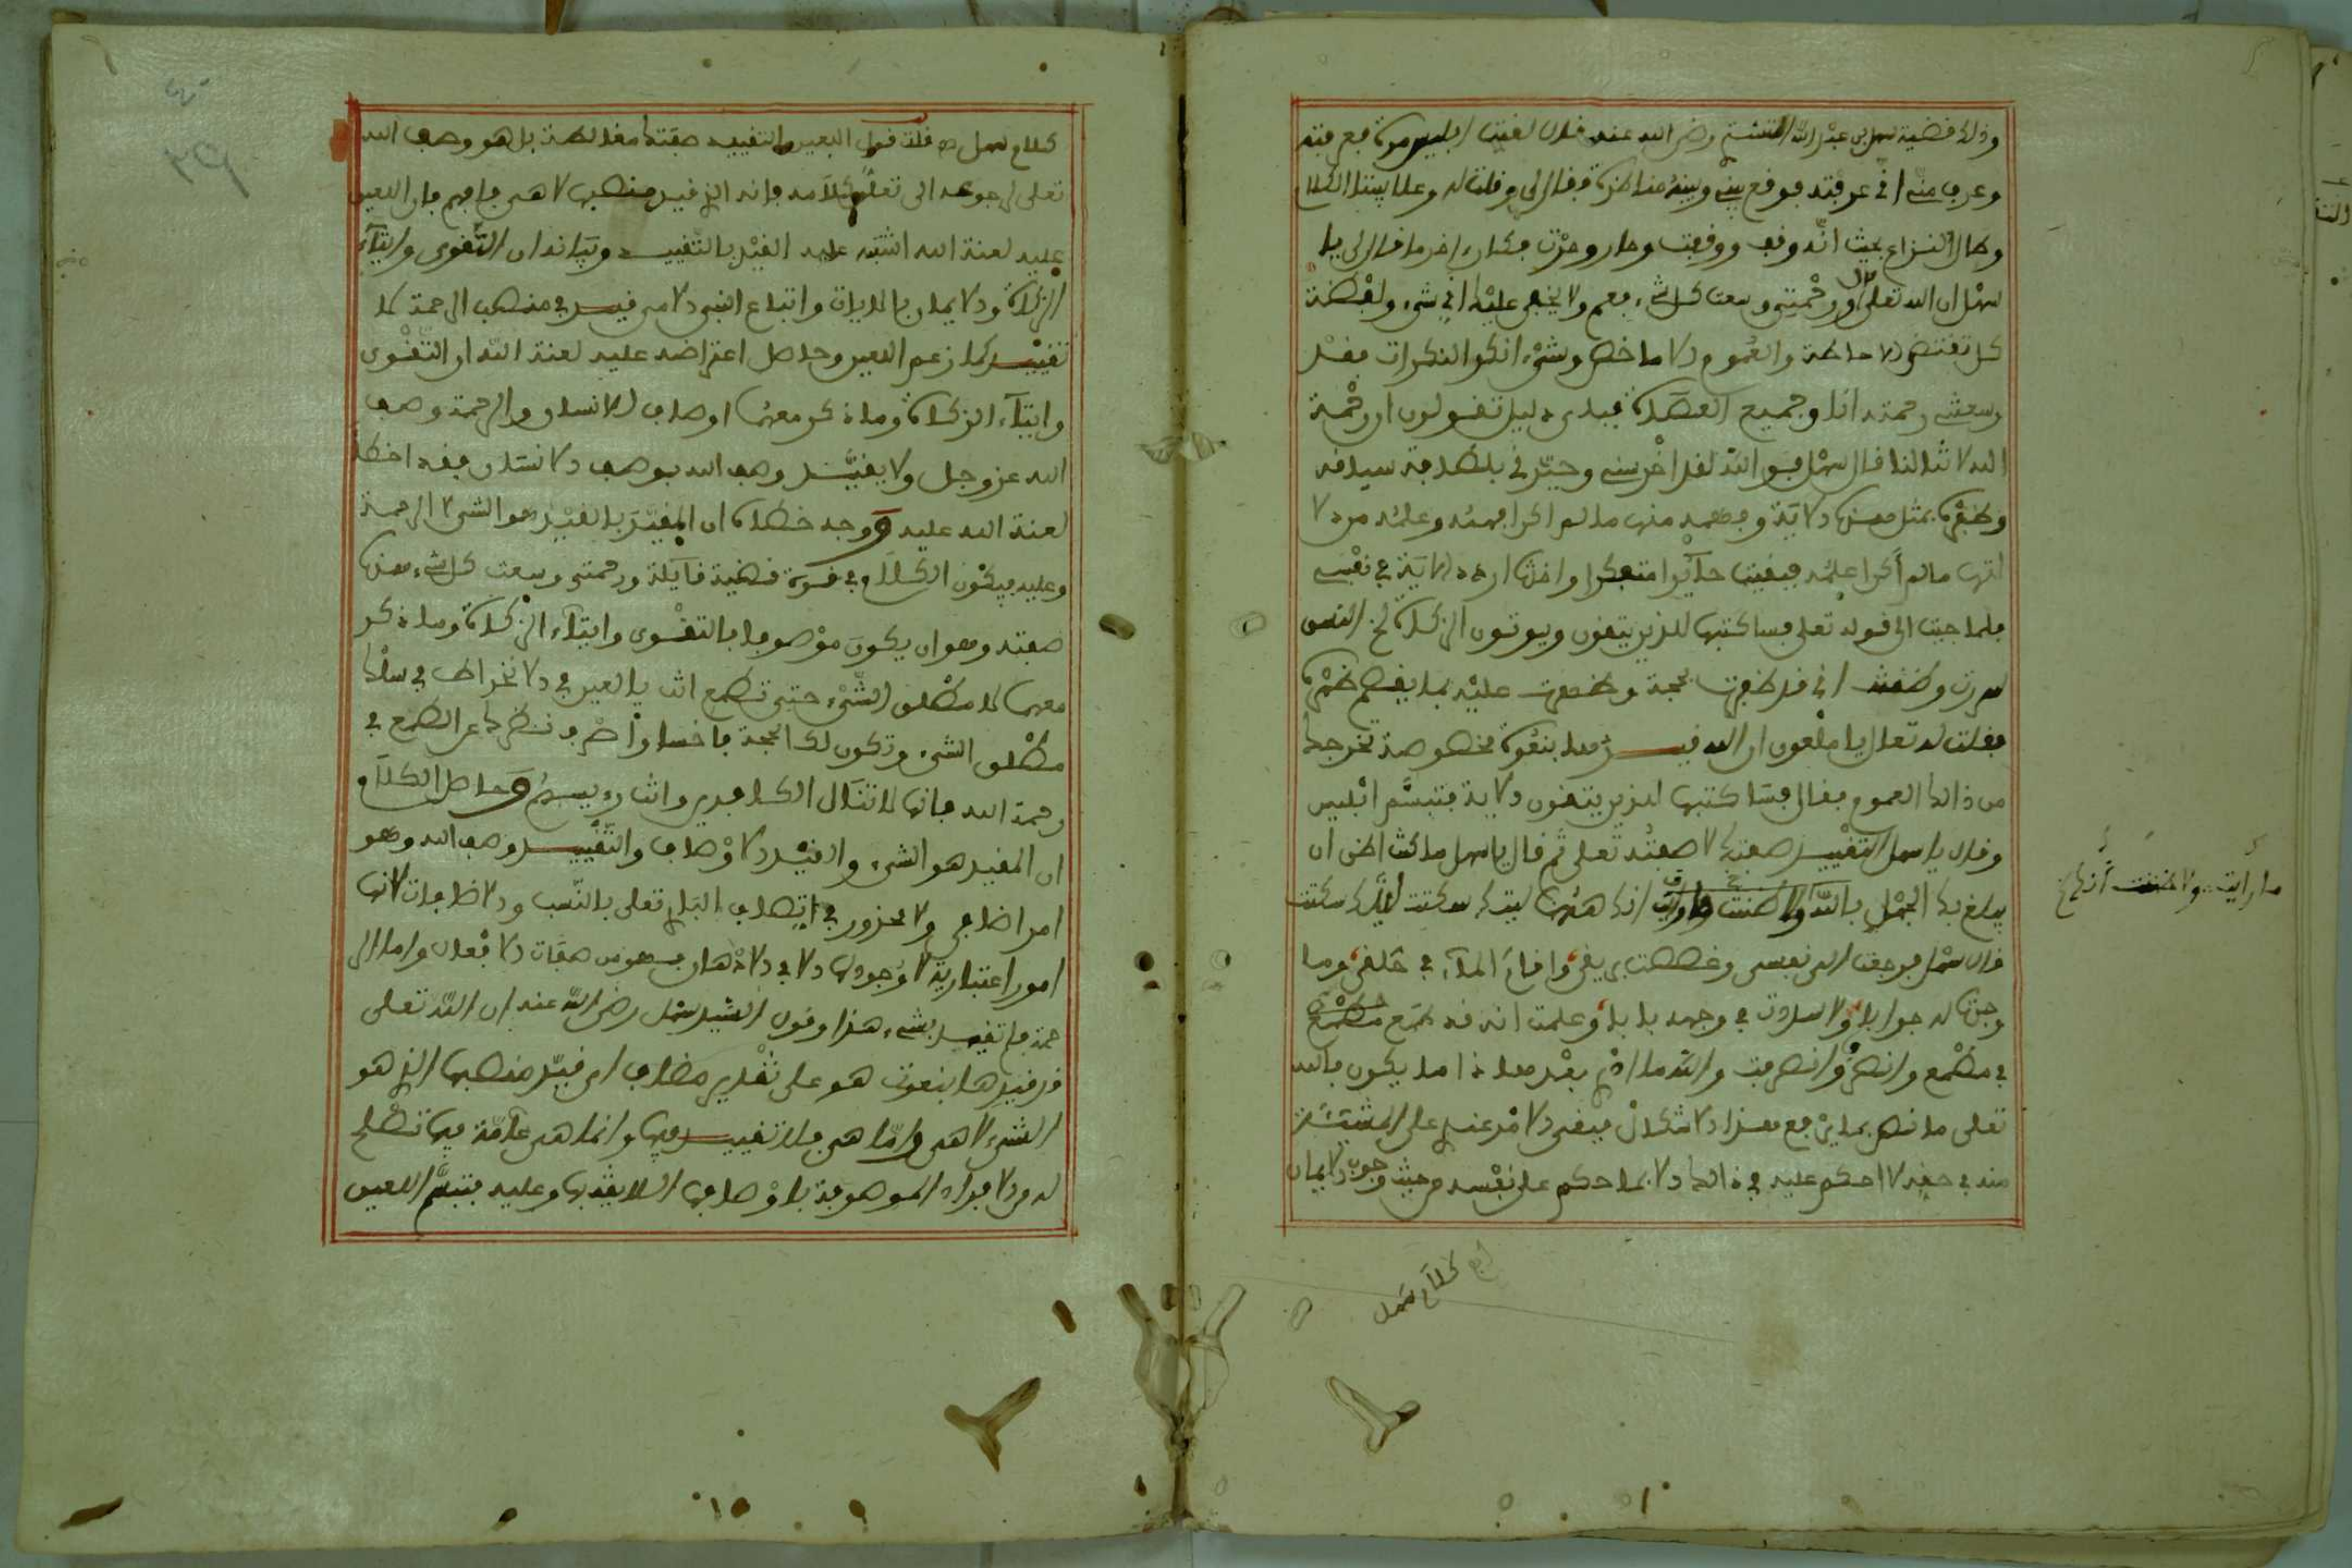 وذلك فضية سهل بن عبد الله التستري رضي الله عنه قال لقيت ابليس مرة فعرفته
وعرف مني اني عرفته فوقع بيني وبينه مناظرة فقال لي وقلت له وعلا بيننا الكلام
وطال النزاع بحيث انه وقف ووقفت وحار وحرت فكان اخر ما قال لي يا
سهل ان الله تعلى قال ورحمتي وسعت كل شيء فعم ولا يخفى عليك اني شيء ولفظة
كل تقتضي الاحاطة والعموم الا ما خص وشيء انكر النكرات فقد
وسعتني رحمته انا وجميع العصاة فباي دليل تقولون ان رحمة
الله لا تنالنا قال سهل فو الله لقد اخرسني وحيرني بلطافة سياقه
وظفره بمثل هذه الاية وفهمه منها ما لم اكن افهمه وعلمه من دلا
لتها ما لم أكن اعلمه فبقيت حآئرا متفكرا واخذت ارد الاية في نفسي
فلما جيت الى قوله تعلى فساكتبها للذين يتقون ويوتون الزكاة الخ النص
سررت وظننت اني قد ظفرت بحجة وظهرت عليه بما يقصم ظهره
فقلت له تعال يا ملعون ان الله قيدها بنعوت مخصوصة تخرجها
من ذالك العموم فقال فساكتبها للذين يتقون الاية فتبسم ابليس
وقال يا سهل التقييد صفتك لا صفته تعلى ثم قال يا سهل ما كنت اظن ان
يبلغ بك الجهل بالله ولا ظننت انك ههنا ليتك سكتت ليتك سكتت
قال سهل فرجعت الى نفسي وغصصت بريقي واقام المآء في حلقي وما
وجدت له جوابا ولا سددت في وجهه بابا وعلمت انه قد طمع
في مطمع وانصرف وانصرفت والله ما ادري بعد هذا ما يكون فالله
تعلى ما نص بما يرفع هذا الاشكال فبقي الامر عندي على المشيئة
منه في خلقه لا احكم عليه في ذالك الا بما حكم على نفسه من حيث وجوب الايمان
ما رأيت ولا ظننت أنك
كلام سهل
كلام سهل قلت قول اللعين والتقييد صفتك مغالطة بل هو وصف الله
تعلى لرجوعه الى تعلق كلامه فانه الذي قيد منصبها لا هي فافهم فان اللعين
عليه لعنة الله اشتبه عليه القيد بالتقييد وبيانه ان التقوى وايتآء
الزكاة والايمان بالايات واتباع النبي الامي قيد في منصب الرحمة لا
تقييد كما زعم اللعين وحاصل اعتراضه عليه لعنة الله ان التقوى
وايتآء الزكاة وما ذكر معهما اوصاف للانسان والرحمة وصف
الله عز وجل ولا يقيد وصف الله بوصف الانسان فقد اخطا
لعنة الله عليه ووجه خطاه ان المقيد بالقيد هو الشيء لا الرحمة
وعليه فيكون الكلام في قوة قضية قآيلة ورحمتي وسعت كل شيء هذه
صفته وهو ان يكون موصوفا بالتقوى وايتآء الزكاة وما ذكر
معهما لا مطلق الشيء حتى تطمع انت يا لعين في الانخراط في سلك
مطلق الشيء وتكون لك الحجة فاخسا واصرف نظرك عن الطمع في
رحمة الله فانها لا تنال الكافرين وانت رءيسهم وحاصل الكلام
ان المقيد هو الشيء والقيد الاوصاف والتقييد وصف الله وهو
امر اضافي ولا محذور في اتصاف الباري تعلى بالنسب والاضافات لانها
امور اعتبارية لا وجود لها الا في الاذهان فهو من صفات الافعال واما الر
حمة فلم تقيد بشيء هذا وقول السيد سهل رضي الله عنه ان الله تعلى
قد قيدها بنعوت هو على تقدير مضاف اي قيد منصبها الذي هو
الشيء لا هي واما هي فلا تقييد فيها وانما هي عآمة فيما تصلح
له من الافراد الموصوفة بالاوصاف السابقة وعليه فتبسم اللعين